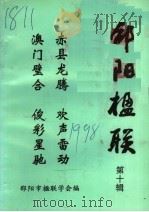 1811
邵阳楹联
第十辑
赤县龙腾 欢声雷动
澳门璧合 俊彩星驰
1998
邵阳市楹联学会编